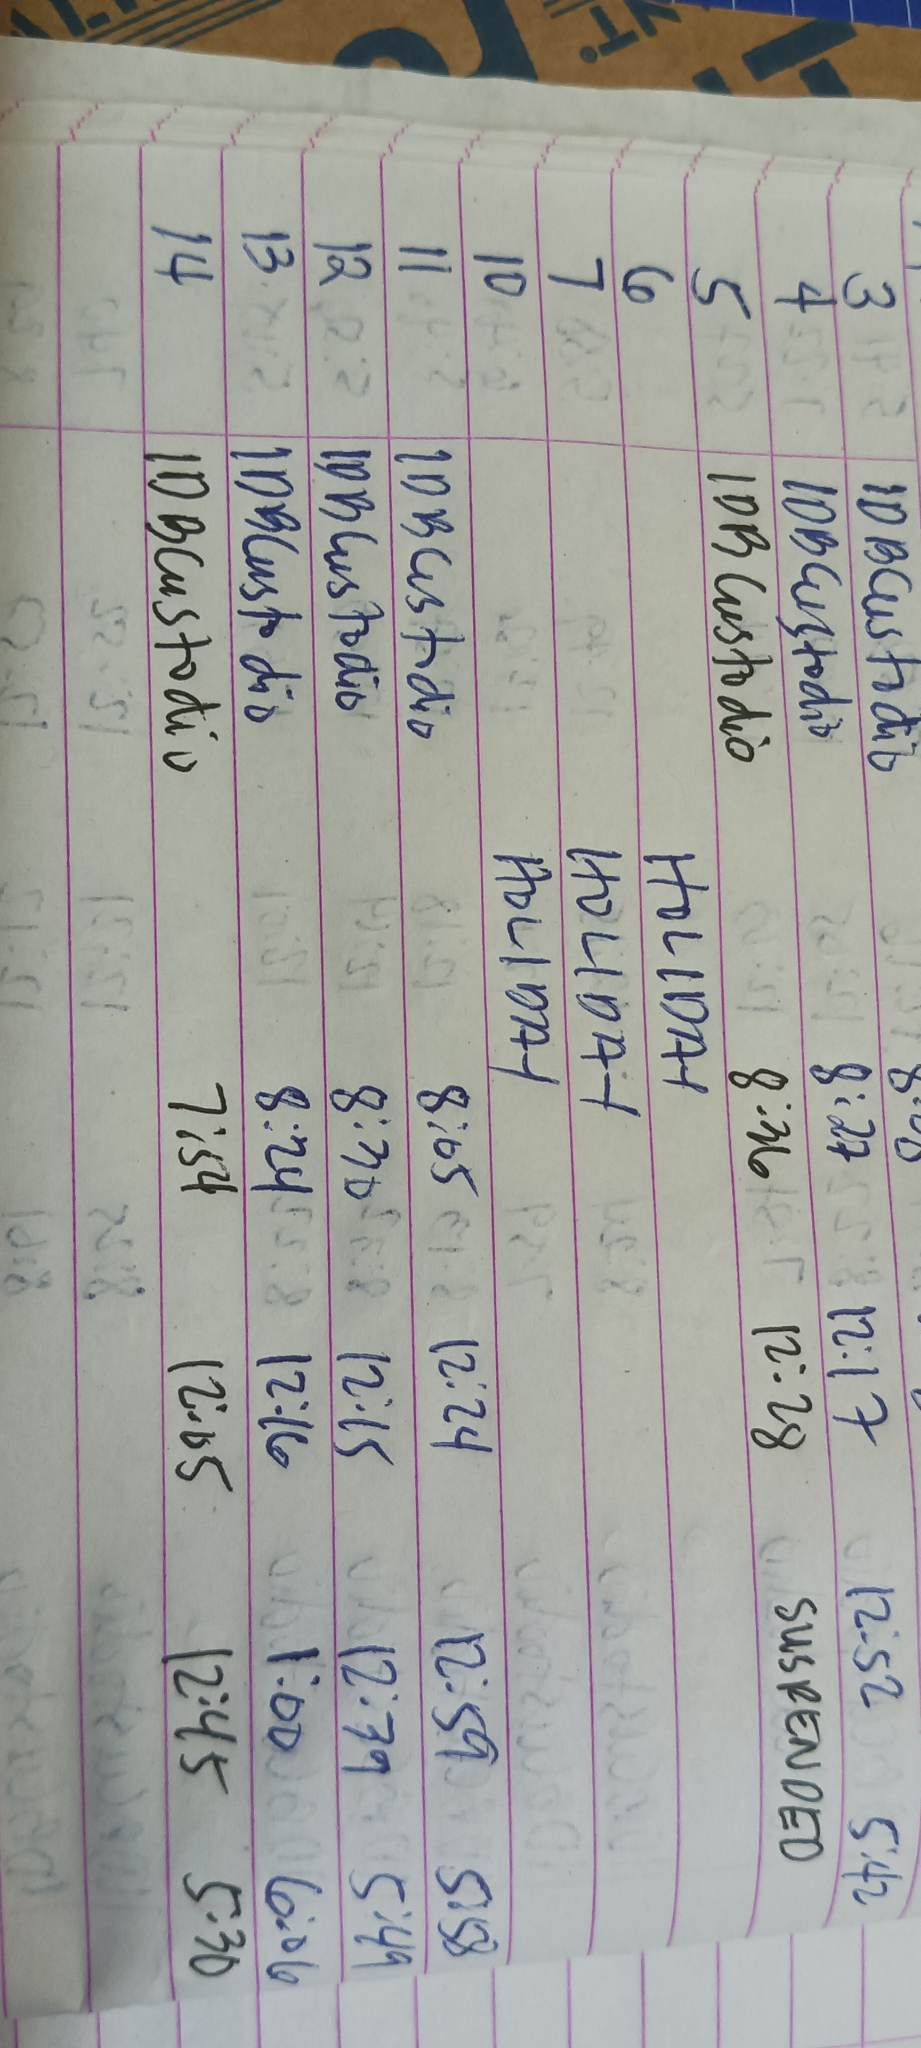 3 IDBCustodio
4 IDBCustodio 8:27 12:17 12:52 5:42
5 IDBCustodio 8:36 12:28 SUSPENDED
6 HOLIDAY
7 HOLIDAY
10 HOLIDAY
11 IDBCustodio 8:05 12:24 12:59 5:58
12 IDBCustodio 8:30 12:15 12:39 5:49
13 IDBCustodio 8:24 12:16 1:00 6:06
14 IDBCustodio 7:54 12:05 12:45 5:30